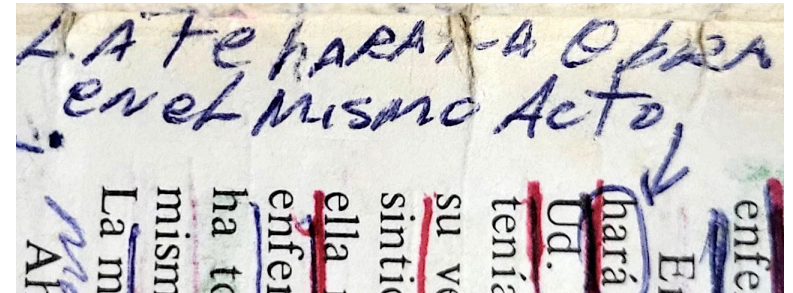 LA Fe hARA LA ObRA
en el Mismo Acto
enfe
hará
Ud.
tenía
su ve
sintió
ella
enfer
ha to
mism
La m